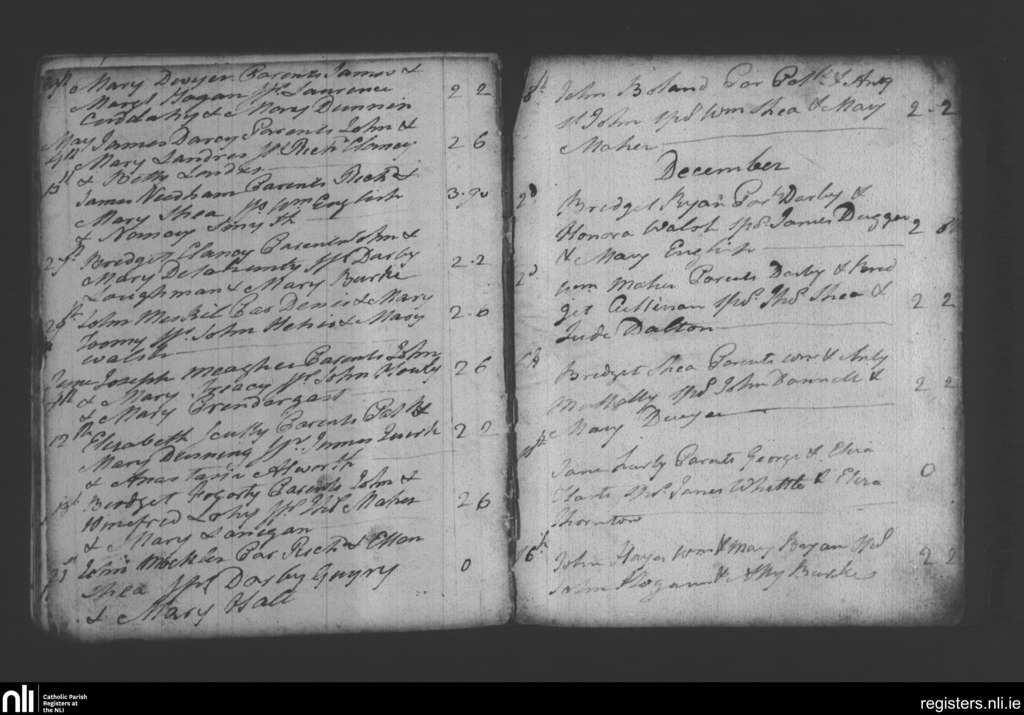 Mary Dwyer Parents James &
Margt Hogan Sps Lawrence
Cuddahy & Mary Dunnin 2 2
May James Darcy Parents John &
9th Mary Landres Sps Richd Clancy 2 6
& Betty Landres
13th James Needham Parents Richd &
Mary Shea Sps Wm English
& Nancy Smyth
Bridget Clancy Parents John &
Mary Delahunty Sps Darby 2-2
Loughman & Mary Burke
John Meskil Par Denis & Mary
Toomy Sps John & Mary 2-0
Walsh
June Joseph Meagher Parents John
& Mary Treacy Sps John 2 6
& Mary Prendergass
12th Elizabeth Scully Parents Patk &
Mary Dunning Sps James Quirk 2
& Anastasia Alworth
Bridget Fogorty Parents John &
Winefred Sps Thos Maher 2 6
& Mary Lanigan
John Mockler Par Richd & Ellan
Shea Sps Darby 0
& Mary Hall
8th John Boland Par Patk & Anty
St John Sps Wm Shea & Mary 2-2
Maher
December
2d Bridget Ryan Par Darby &
Honora Walsh Sps James Duggan 2
& Mary English
2d Wm Maher Parents Darby & Brid
get Cullinan Sps Thos Shea & 2 2
Jude Dalton
Bridget Shea Parents Wm & Anty
Sps John Donnell & 2 2
Mary Dwyer
Jane Parents George & Eliza
Sps James Whittle & Eliza 0
Thornton
16th John Hayes Wm & Mary Ryan Sps
John Hogan & Burke 2 2
nli
Catholic Parish
Registers at
the NLI
registers.nli.ie